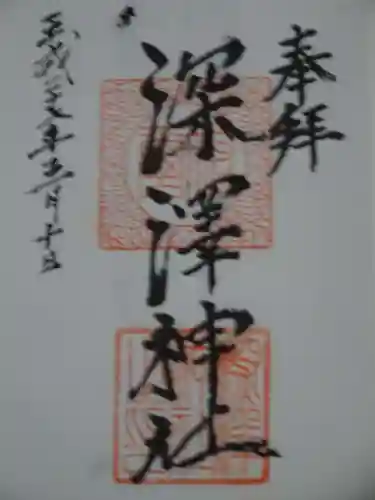 奉拝
深澤神社
平成二十七年五月十日